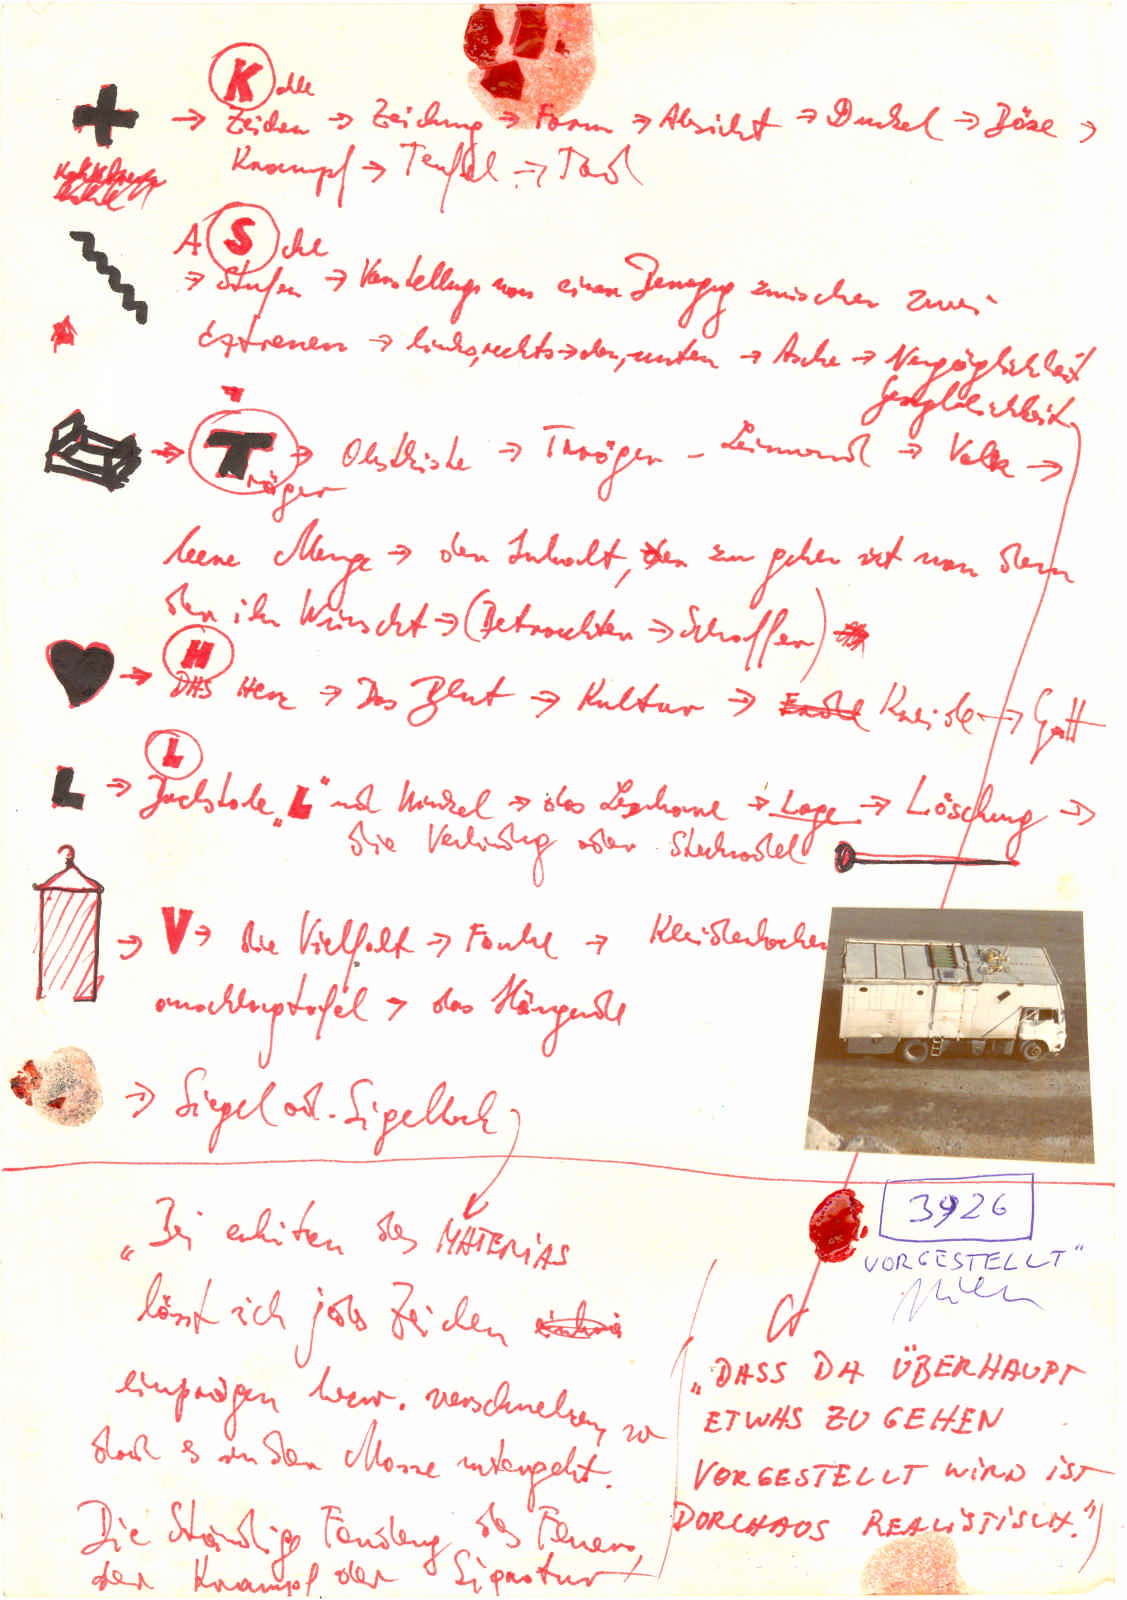 Kohle
→ Zeichen → Zeichnung → Form → Absicht → Dunkel → Böse →
Krampf → Teufel → Tod
ASche
→ Stufen → Vorstellung von einer Bewegung zwischen zwei
Extremen → links, rechts → oben, unten → Asche → Vergänglichkeit
→ Träger → Obstkiste → Träger - Leinwand → Volk →
leere Menge → der Inhalt, der zu geben ist von dem
der ihn Wünscht → (Betrachten → Schaffen)
→ H
DAS Herz → Das Blut → Kultur → Kreide → Gott
L
→ Buchstabe „L“ und Winkel → das → Lage → Löschung →
die Verbindung oder Stecknadel
→ V → die Vielfalt → Farbe → Kleider
anschlagtafel → das Hängende
→ Siegel od. Sigellack
„Bei erhitzen des MATERIAS
lässt sich jedes Zeichen
einprägen bzw. verschmelzen, so
daß es in der Masse untergeht.
Die Ständige Forderung des Feuers,
der Krampf der Signatur
3926
VORGESTELLT"
„DASS DA ÜBERHAUPT
ETWAS ZU GEHEN
VORGESTELLT WIRD IST
DORCHAUS REALISTISCH."